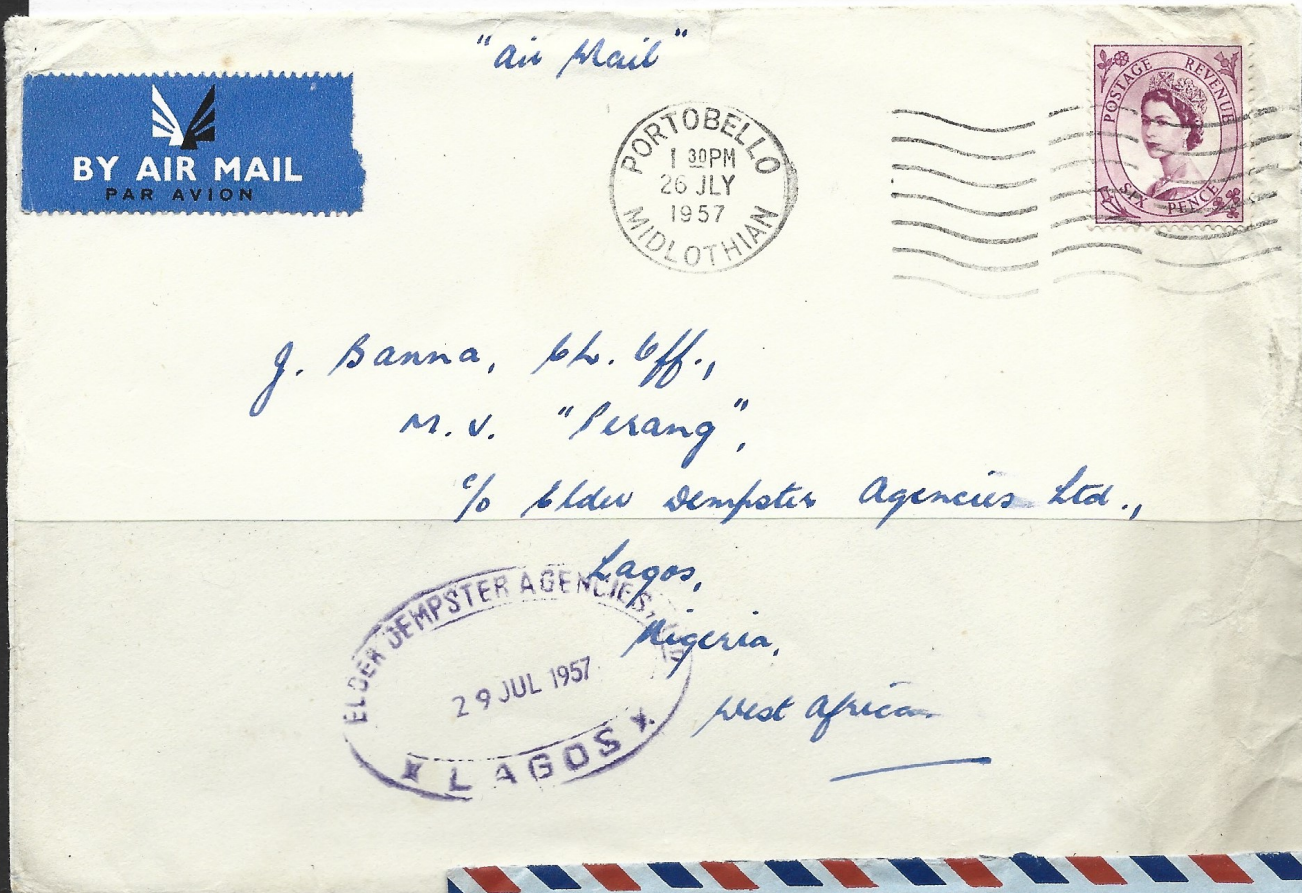 "Air Mail"
BY AIR MAIL
PAR AVION
PORTOBELLO
1 30PM
26 JLY
1957
MIDLOTHIAN
POSTAGE REVENUE
SIX PENCE
J. Banna, Ch. Off.,
M.V. "Perang",
c/o Elder Dempster Agencies Ltd.,
Lagos,
Nigeria,
West Africa
ELDER DEMPSTER AGENCIES, LTD
29 JUL 1957
LAGOS